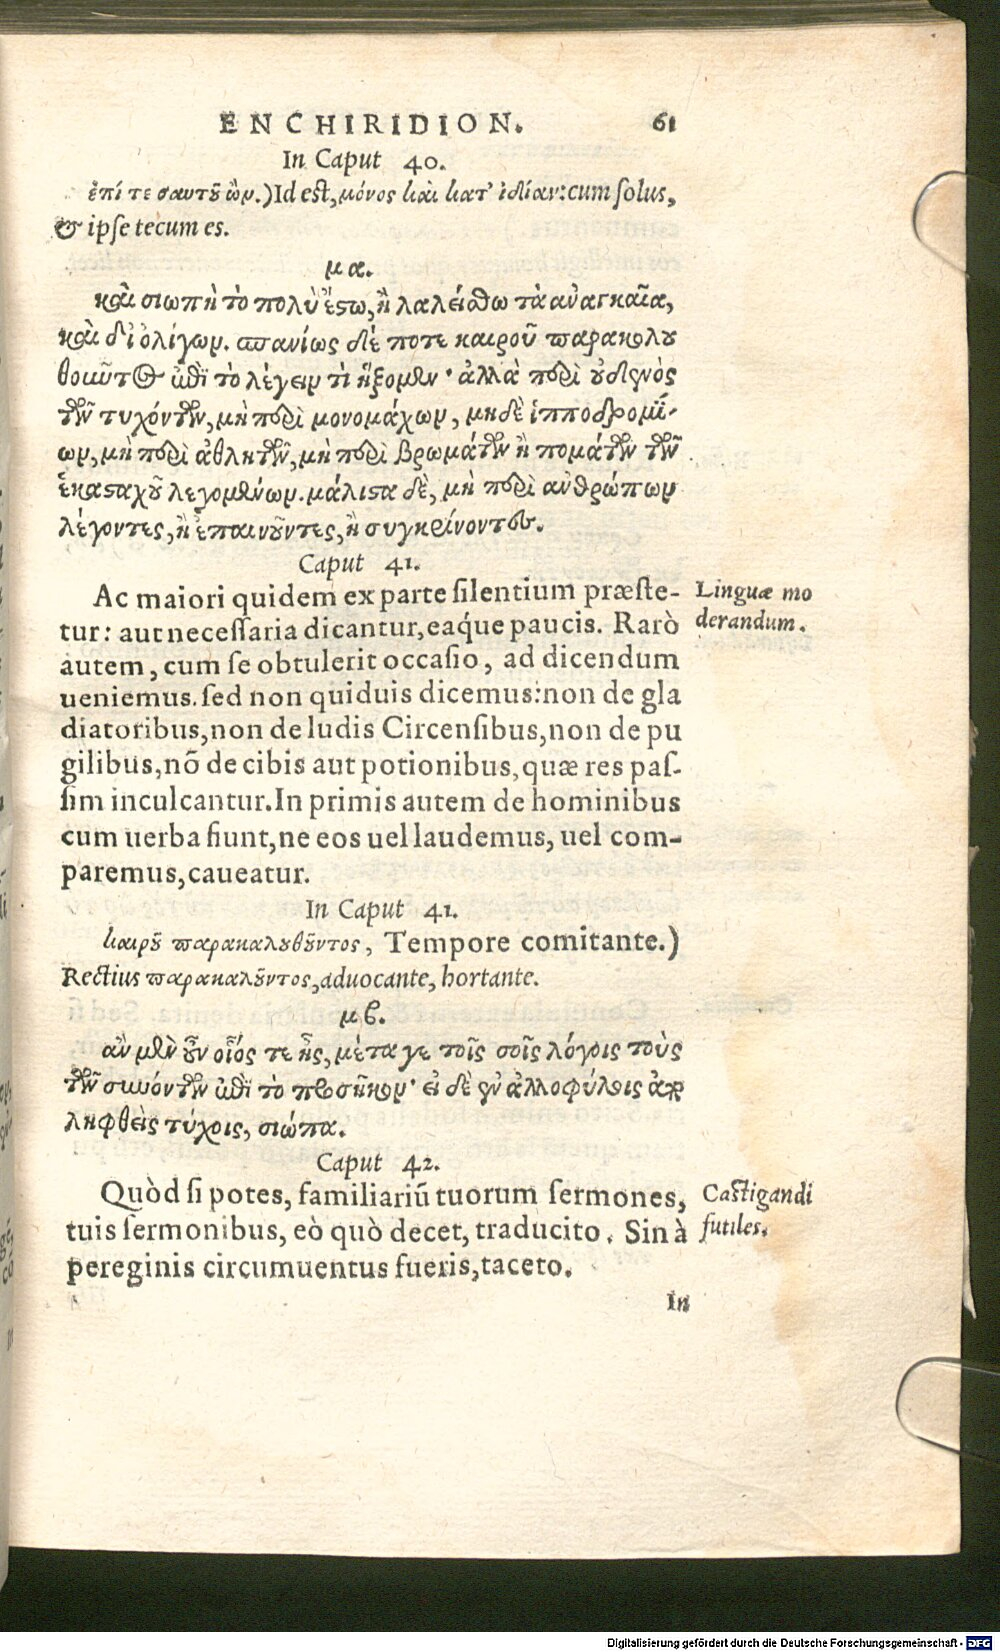 ENCHIRIDION. 61
In Caput 40.
ἐπί τε σαυτοῦ ὢν.) Id est, μόνος καὶ κατ' ἰδίαν: cum solus,
& ipse tecum es.
μα.
καὶ σιωπὴ τὸ πολὺ ἔστω, ἢ λαλείσθω τὰ ἀναγκαῖα,
καὶ δι' ὀλίγων. σπανίως δέ ποτε καιροῦ παρακολου
θοιῦντος ἐπὶ τὸ λέγειν τὶ ἥξομεν· ἀλλὰ περὶ οὐδενὸς
τῶν τυχόντων, μὴ περὶ μονομάχων, μηδὲ ἱπποδρομί-
ων, μὴ περὶ ἀθλητῶν, μὴ περὶ βρωμάτων ἢ πομάτων τῶν
ἑκασταχοῦ λεγομένων. μάλιστα δὲ, μὴ περὶ ἀνθρώπων
λέγοντες, ἢ ἐπαινοῦντες, ἢ συγκρίνοντες.
Caput 41.
Ac maiori quidem ex parte silentium præste-
tur: aut necessaria dicantur, eaq́ue paucis. Rarò
autem, cum se obtulerit occasio, ad dicendum
ueniemus. sed non quiduis dicemus: non de gla
diatoribus, non de ludis Circensibus, non de pu
gilibus, nō de cibis aut potionibus, quæ res pas-
sim inculcantur. In primis autem de hominibus
cum uerba fiunt, ne eos uel laudemus, uel com-
paremus, caueatur.
Linguæ mo
derandum.
In Caput 41.
καιροῦ παρακαλουθοῦντος, Tempore comitante.)
Rectius παρακαλοῦντος, aduocante, hortante.
μβ.
ἂν μὲν οὖν οἷός τε ᾖς, μέταγε τοῖς σοῖς λόγοις τοὺς
τῶν συνόντων ἐπὶ τὸ προσῆκον· εἰ δὲ ἐν ἀλλοφύλοις ἀπο
ληφθεὶς τύχοις, σιώπα.
Caput 42.
Quòd si potes, familiariū tuorum sermones,
tuis sermonibus, eò quò decet, traducito. Sin à
pereginis circumuentus fueris, taceto.
Castigandi
futiles.
In
Digitalisierung gefördert durch die Deutsche Forschungsgemeinschaft - DFG